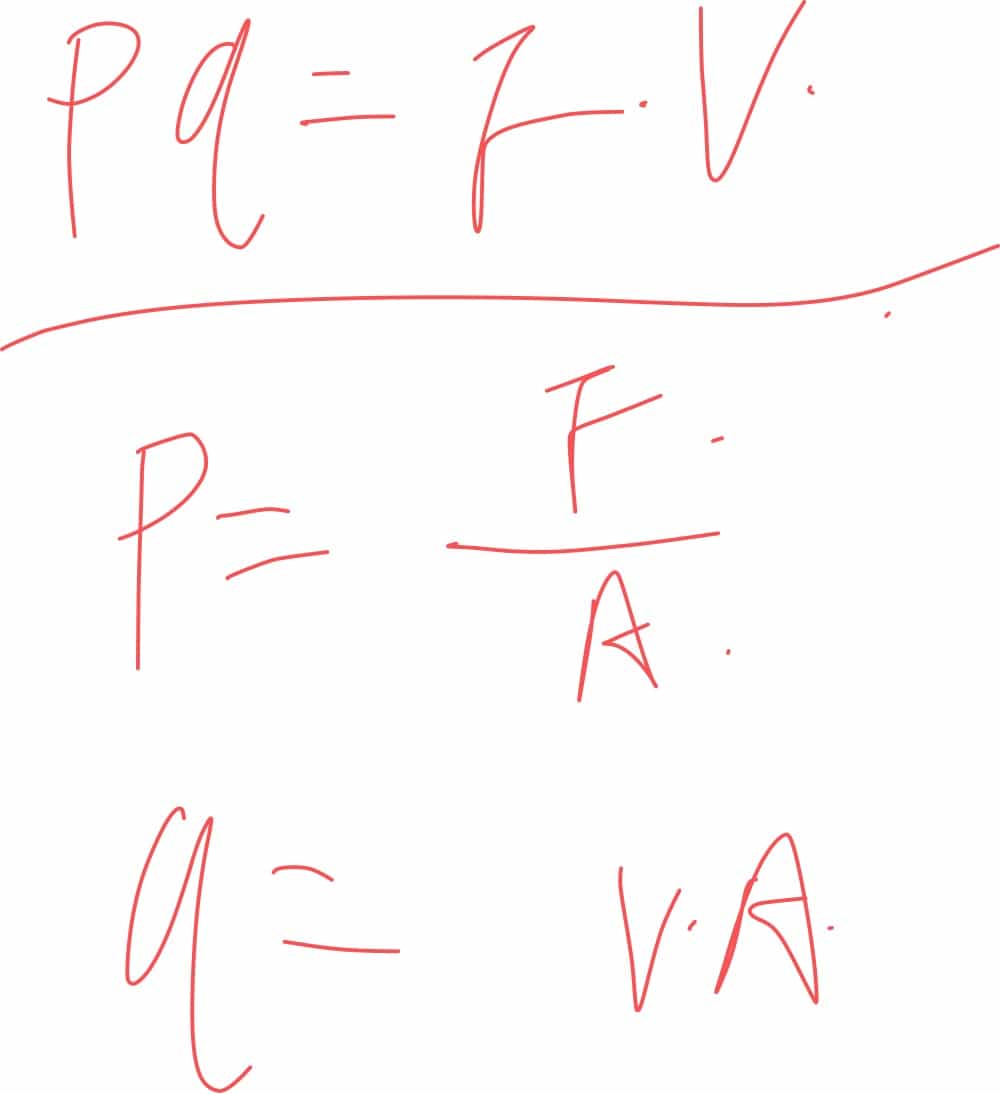 Pq = F · V.
P = F / A.
q = V · A.